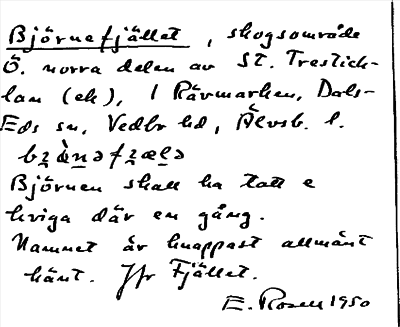 Björnefjället, skogsområde
Ö. norra delen av St. Trestick-
lan (ek), i Rävmarken, Dals-
Eds sn, Vedbo hd, Älvsb. l.
Björnen skall ha tatt e
kviga där en gång.
Namnet är knappast allmänt
känt. Jfr Fjället.
E. Rosell 1950